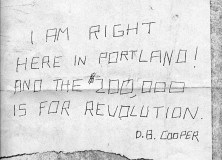 I AM RIGHT
HERE IN PORTLAND!
AND THE $200,000
IS FOR REVOLUTION.
D.B. COOPER